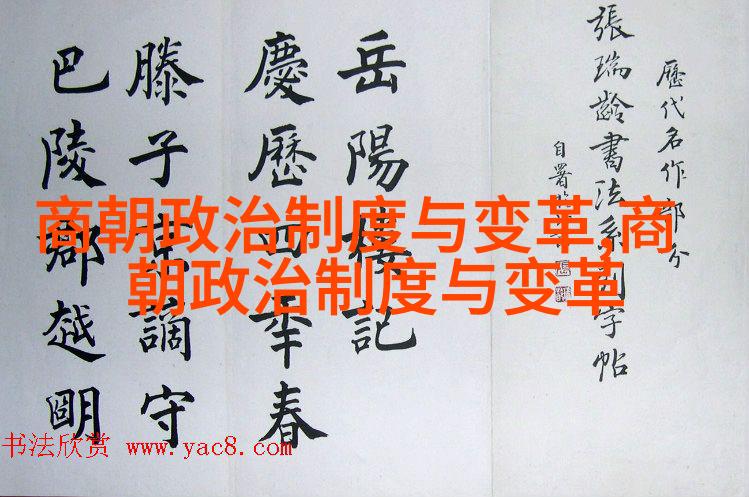 歷代名作部分
張瑞齡書法系列字帖
自署
岳陽樓記
慶歷四年春
滕子京謫守
巴陵郡越明
商朝政治制度与变革,商
朝政治制度与变革
书法欣赏 www.yac8.com